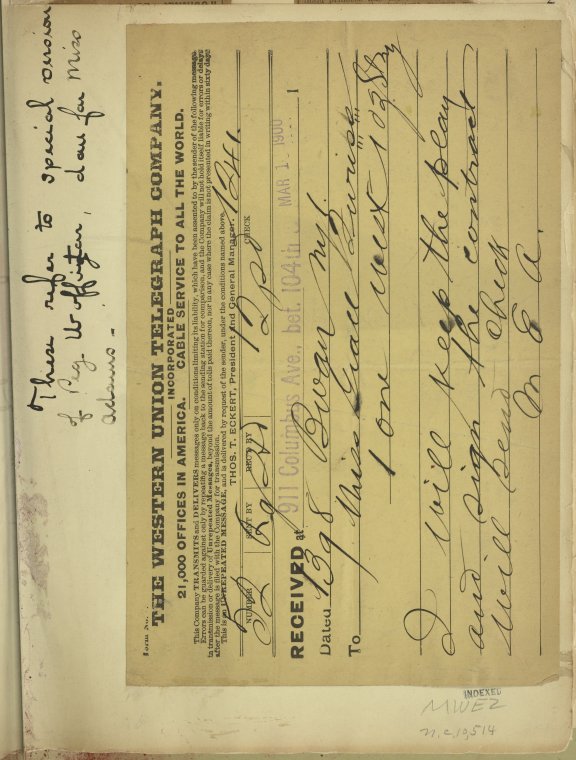 These refer to special version
of Peg Woffington, done for Miss
Adams -
Form No.
THE WESTERN UNION TELEGRAPH COMPANY.
INCORPORATED
21,000 OFFICES IN AMERICA. CABLE SERVICE TO ALL THE WORLD.
This Company TRANSMITS and DELIVERS messages only on conditions limiting its liability, which have been assented to by the sender of the following message.
Errors can be guarded against only by repeating a message back to the sending station for comparison, and the Company will not hold itself liable for errors or delays
in transmission or delivery of Unrepeated Messages, beyond the amount of tolls paid thereon, nor in any case where the claim is not presented in writing within sixty days
after the message is filed with the Company for transmission.
This is an UNREPEATED MESSAGE, and is delivered by request of the sender, under the conditions named above.
THOS. T. ECKERT, President and General Manager.
NUMBER SENT BY REC'D BY CHECK
RECEIVED at 911 Columbus Ave., bet. 104th MAR 1900
Dated
To Miss Grace
I will keep the play
and sign the contract
Will send check
M E A.
INDEXED
MWEZ
n.c. 19514